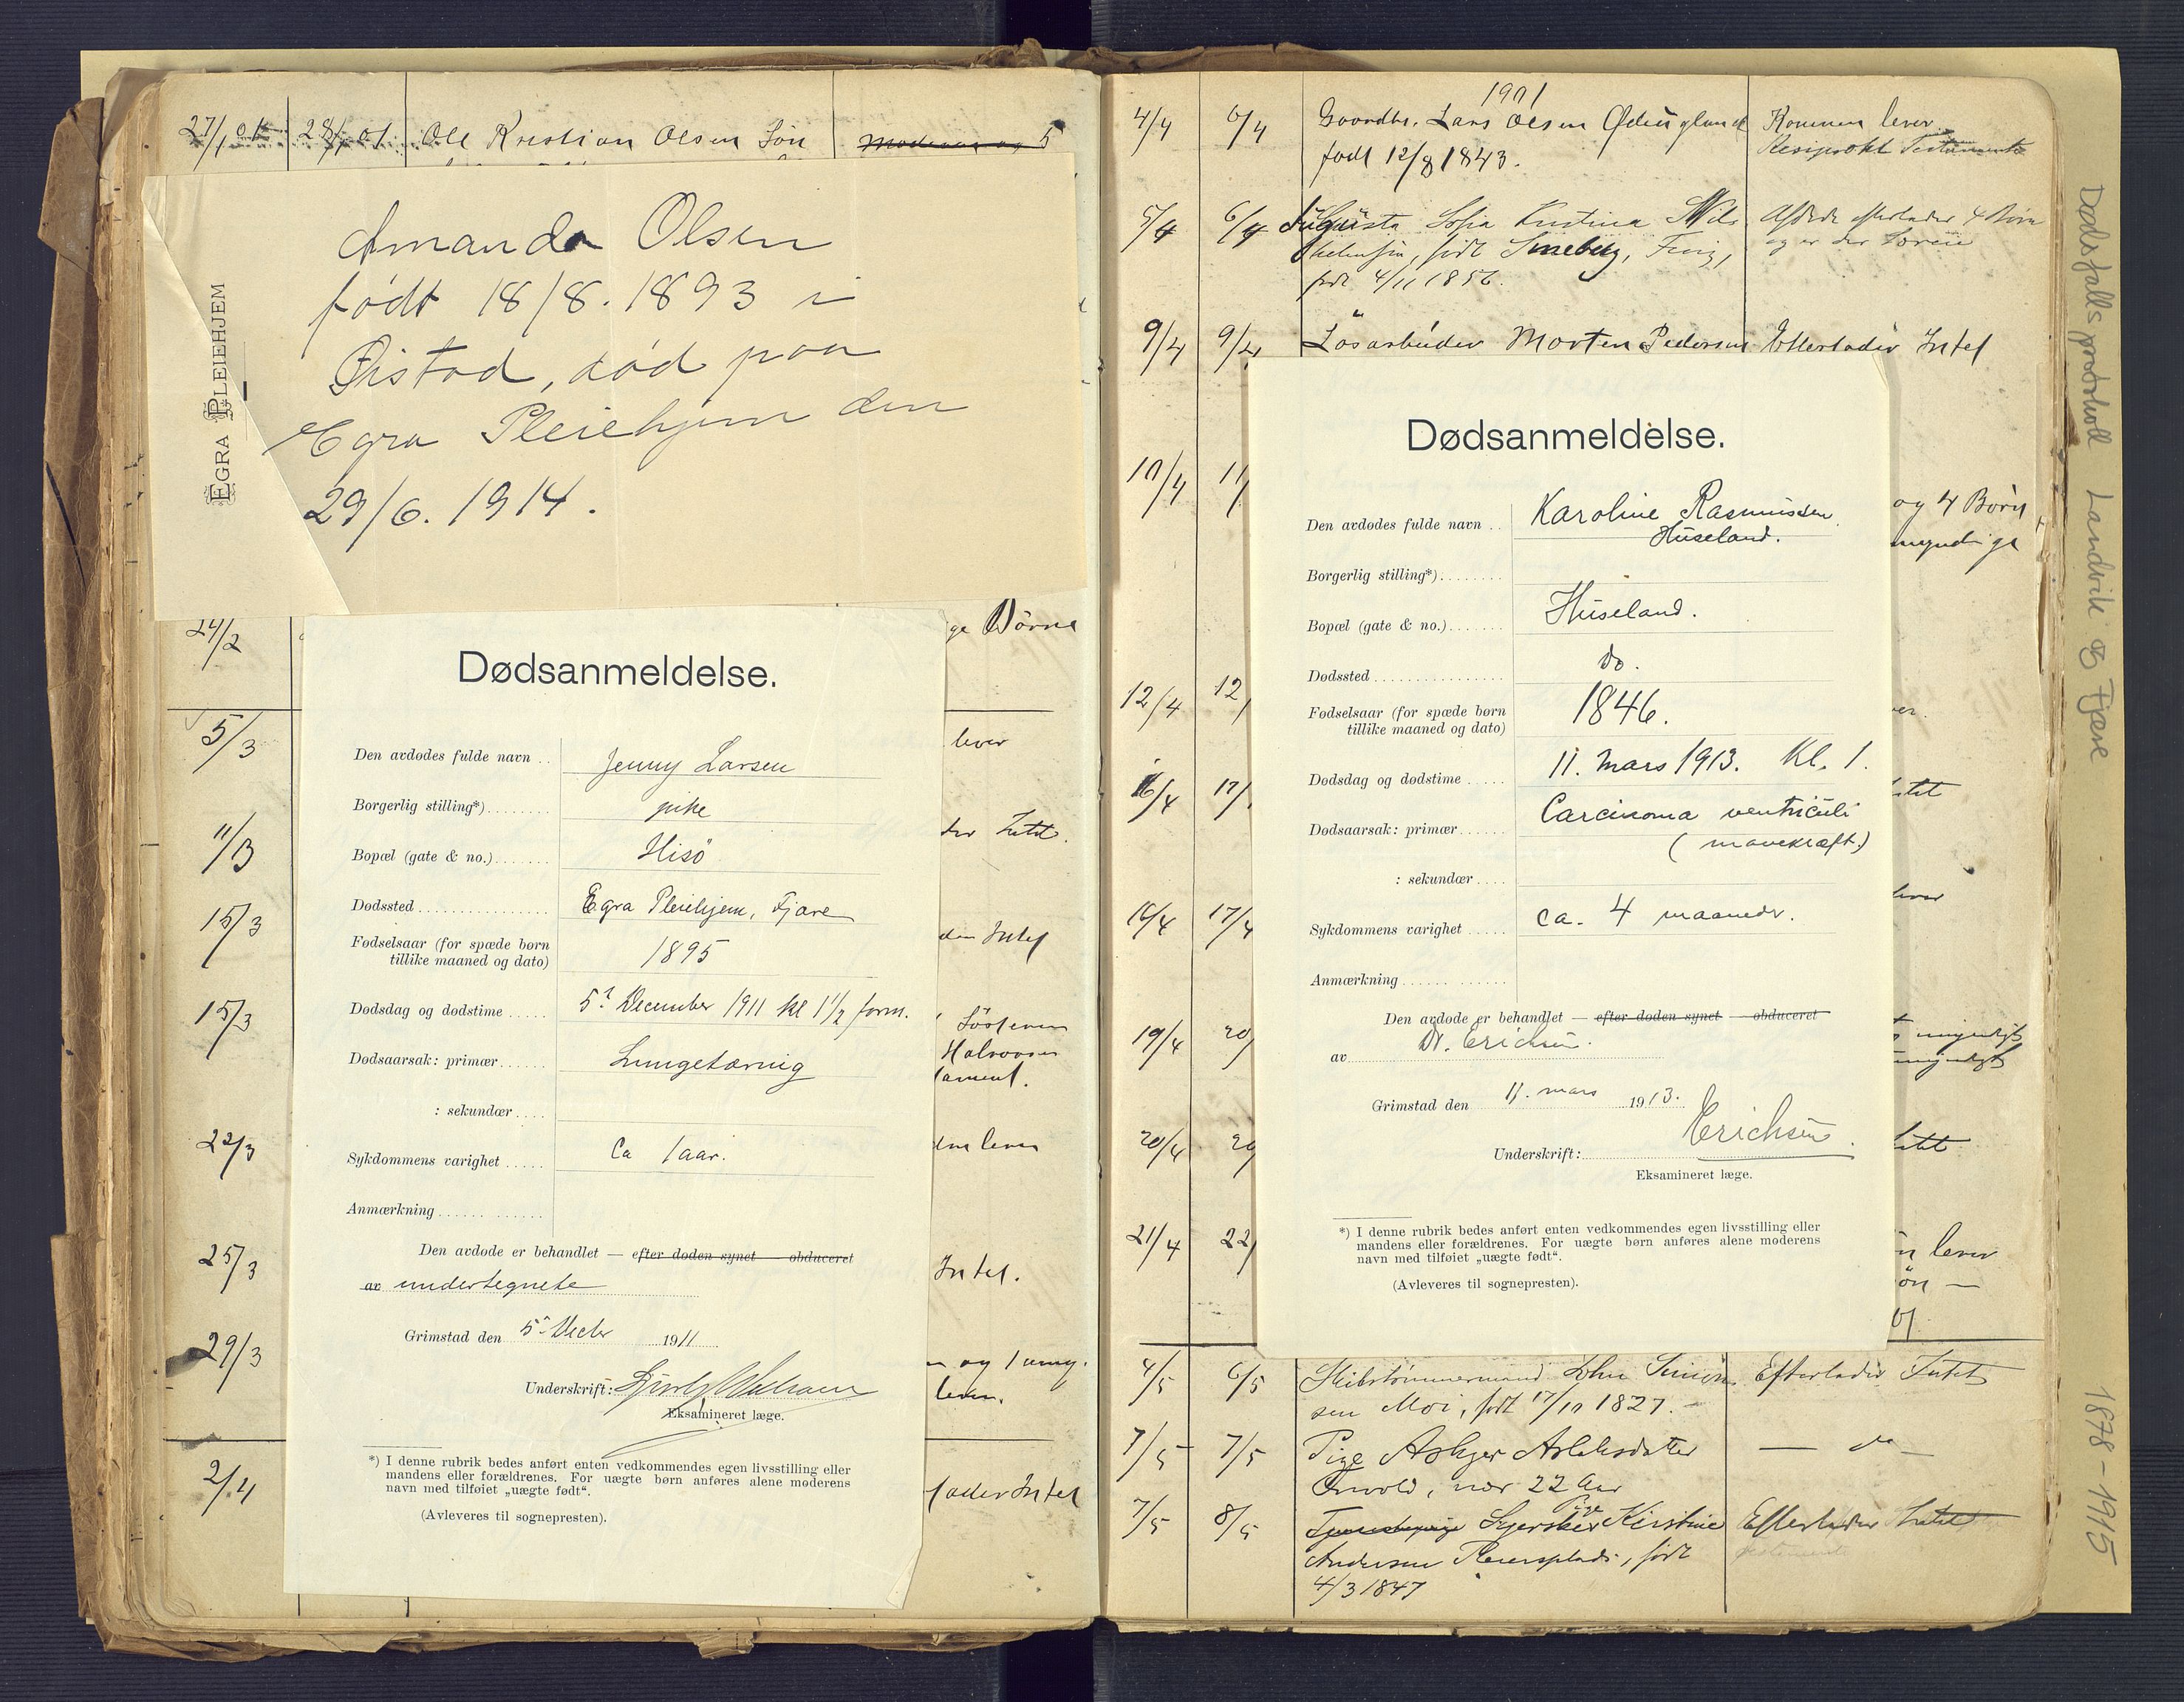 27/1 01 28/1 01 Ole Kristian Olsen Søn
5
EGRA PLEIEHJEM
Amanda Olsen
født 18/8. 1893 i
Øistad, død paa
Egra Pleiehjem den
29/6. 1914.
24/2
ge Børne
5/3
lever
11/3
der Intet.
15/3
den Intet
15/3
22/3
lever
25/3
Intet.
29/3
og 1 umy.
lever.
2/4
lader Intet
Dødsanmeldelse.
Den avdødes fulde navn .. Jenny Larsen
Borgerlig stilling*)........ pike
Bopæl (gate & no.)....... Hisö
Dødssted ................ Egra Pleiehjem, Fjære
Fødselsaar (for spæde børn 1895
tillike maaned og dato)
Dødsdag og dødstime ..... 5. December 1911 kl 1 1/2 form.
Dødsaarsak: primær ...... Lungetæring
: sekundær ....
Sykdommens varighet ..... Ca 1 aar.
Anmærkning ...... ......
Den avdøde er behandlet — efter døden synet — obduceret
av undertegnete
Grimstad den 5. Decbr 1911
Underskrift:
Eksamineret læge.
*) I denne rubrik bedes anført enten vedkommendes egen livsstilling eller
mandens eller forældrenes. For uægte børn anføres alene moderens
navn med tilføiet „uægte født“.
(Avleveres til sognepresten).
1901
4/4 6/4 Gaardbr. Lars Olsen Ødeugland Konen lever
født 12/8 1843. Resiprokt Testamente
5/4 6/4 Augusta Sofia Kristina
født 4/11 1856.
9/4 9/4 Løsarbeider Morten Pedersen Efterlader Intet
10/4 11/
og 4 Børn
myndige
12/4 12/
16/4 17/
16/4 17/4
19/4 20/
20/4
21/4 22/
lever
Dødsanmeldelse.
Den avdødes fulde navn .. Karoline Rasmussen
Huseland.
Borgerlig stilling*)........
Bopæl (gate & no.)....... Huseland.
Dødssted ................ do.
Fødselsaar (for spæde børn 1846.
tillike maaned og dato)
Dødsdag og dødstime ..... 11. mars 1913. Kl. 1.
Dødsaarsak: primær ...... Carcinoma ventriculi
(mavekræft.)
: sekundær ....
Sykdommens varighet ..... ca. 4 maaneder.
Anmærkning ...... ......
Den avdøde er behandlet — efter døden synet — obduceret
av Dr. Erichsen.
Grimstad den 11. mars 1913.
Underskrift: Erichsen.
Eksamineret læge.
*) I denne rubrik bedes anført enten vedkommendes egen livsstilling eller
mandens eller forældrenes. For uægte børn anføres alene moderens
navn med tilføiet „uægte født“.
(Avleveres til sognepresten).
4/5 6/5 Skibstømmermand John Simon- Efterlader Intet
sen Moi, født 17/10 1827.
7/5 7/5 Pige Asbjør Aslaksdatter — do —
22 Aar
7/5 8/5 Pige Kirstine Efterlader Intet
Andersen født
4/3 1847
Dødsfallsprotokoll Landvik og Fjære 1878-1915